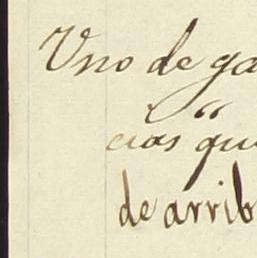 Uno de ga
" "
cias qu
de arrib